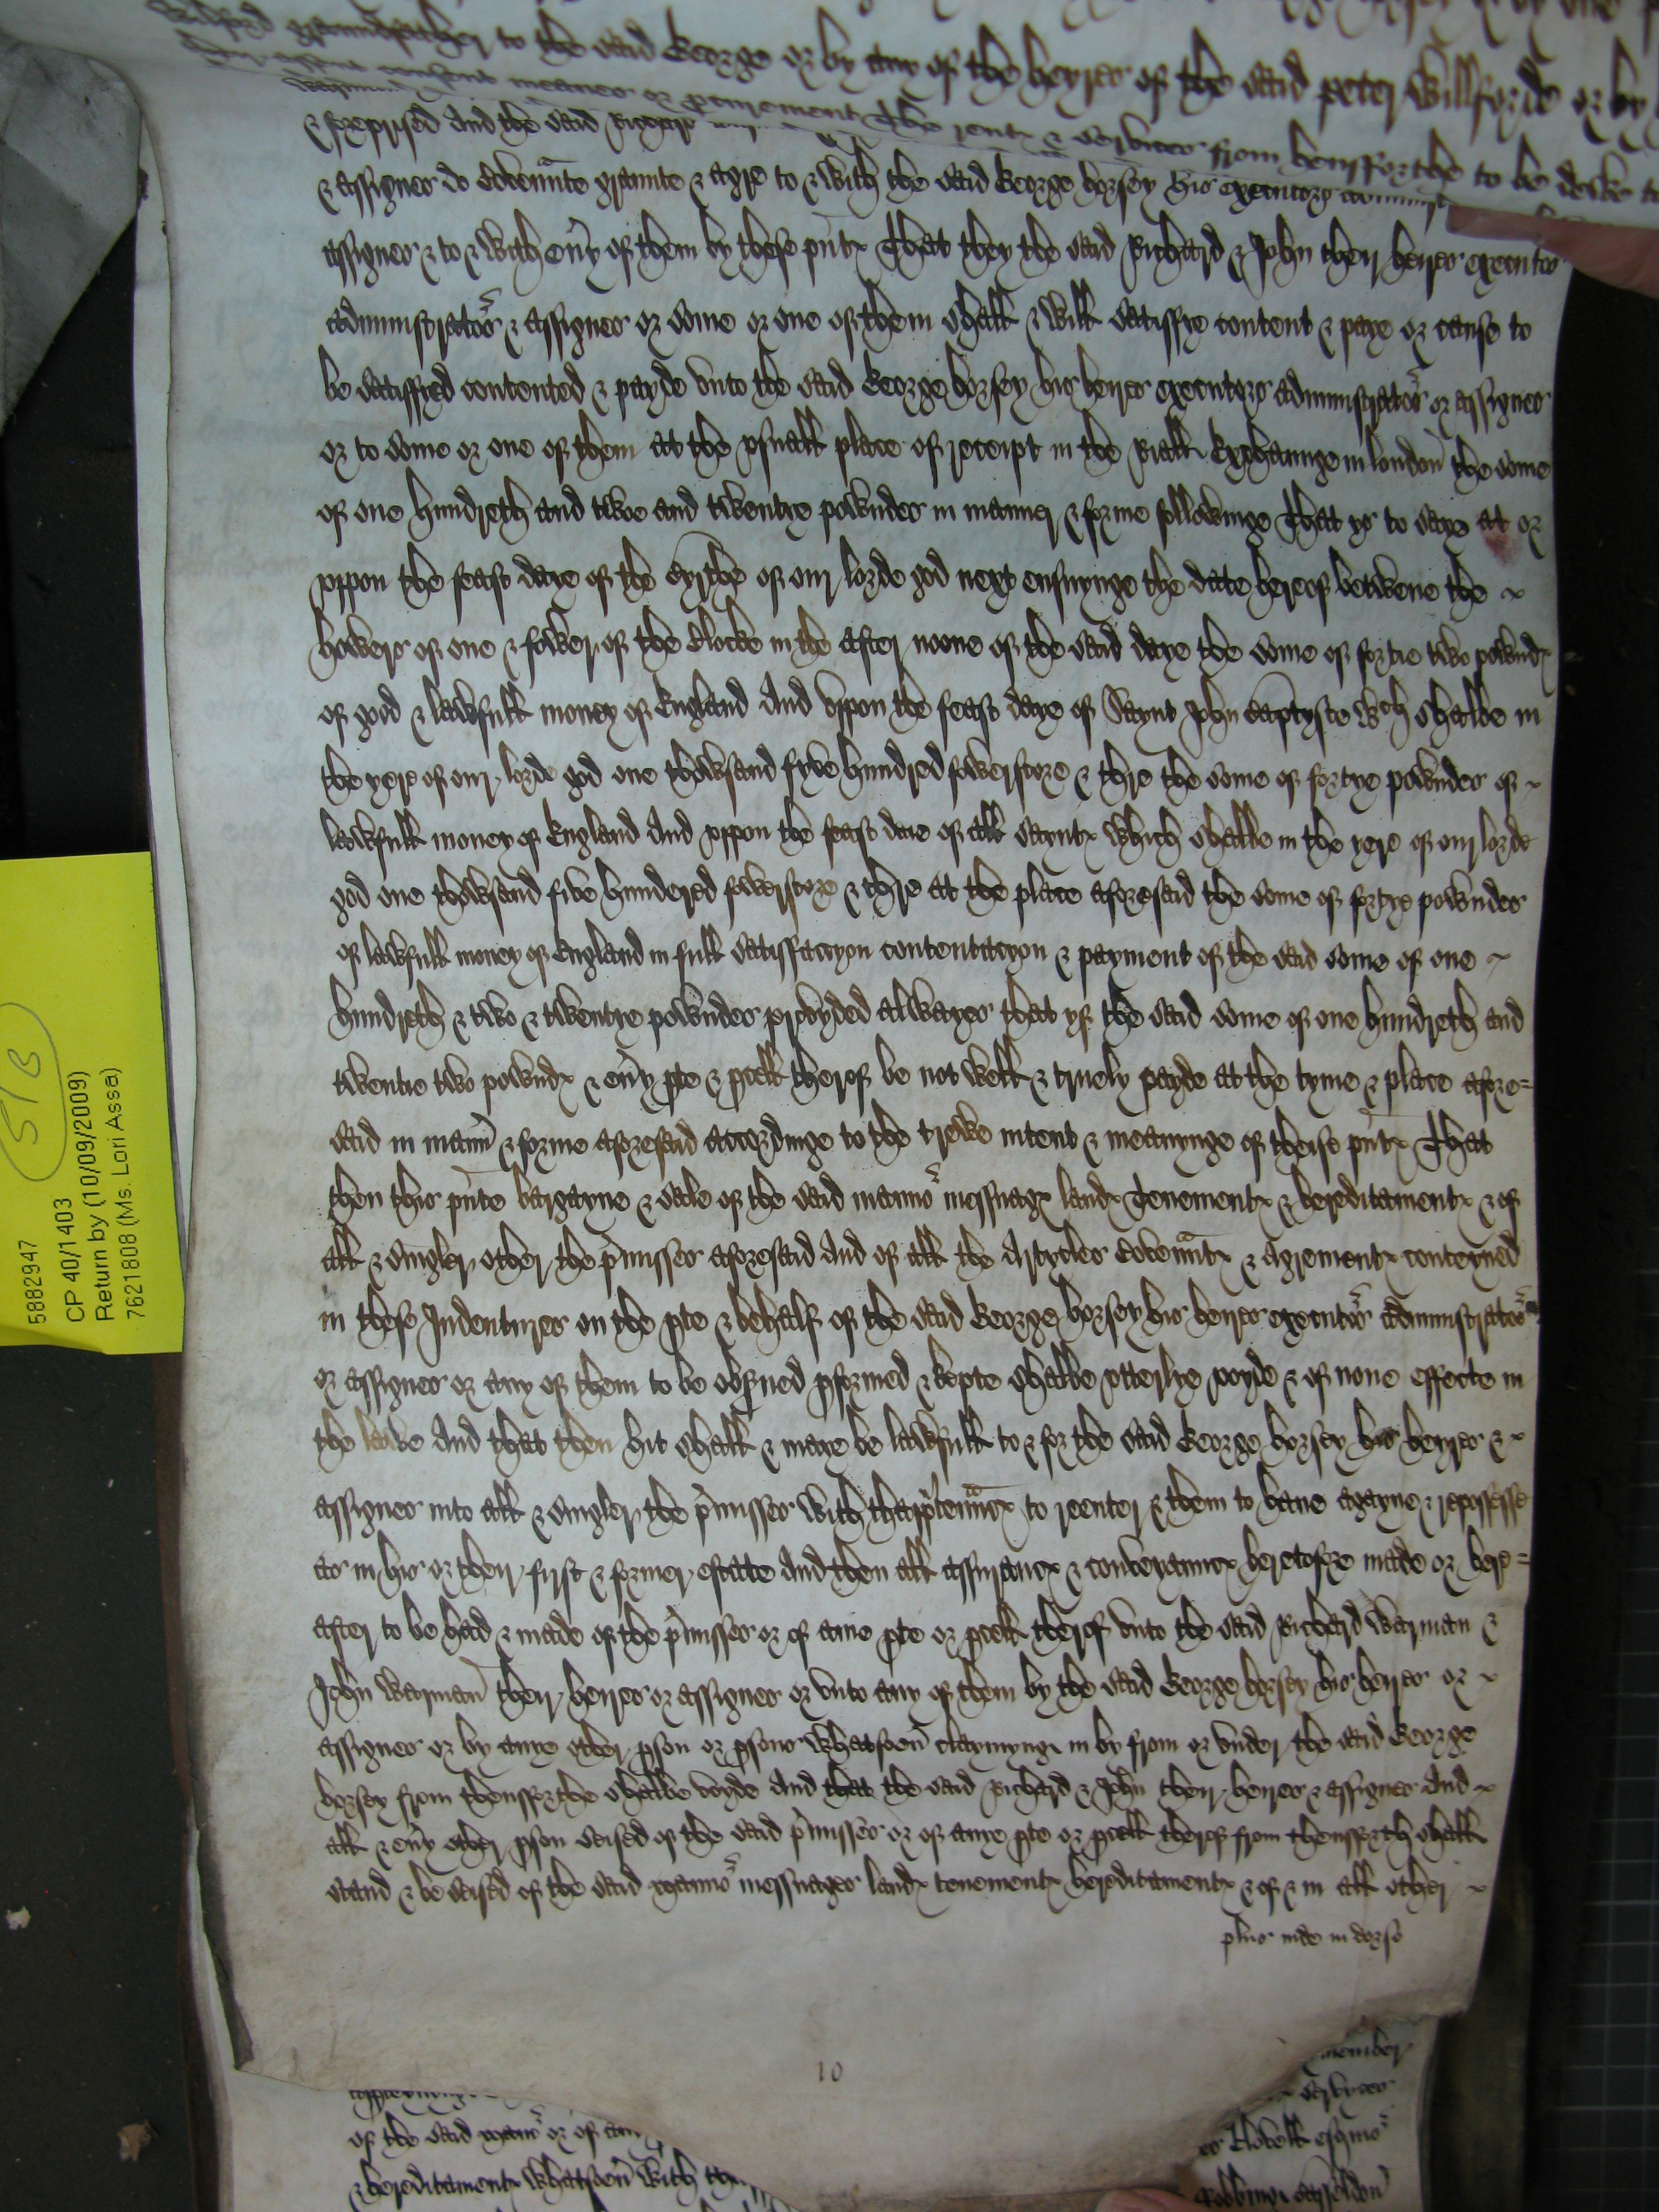 to the said George or by any of the heyres of the said peter Willforde or by
consent meanes or procurement The rentℯ & services from hensforthe to be
& foreprised And the said Richard
& assignes do Covennte graunte & agre to & with the said George horsey his executors
assignes & to & with eũy of them by these pñtℯ That they the said Richard & John their heires executors
administrators & assignes or some or one of them shall & will satisfye content & paye or cause to
be satisfyed contented & payde unto the said George horsey his heires executors administrators or assignes
or to some or one of them at the usuall place of receipt in the Riall Exchaunge in london the some
of one hundreth and twoe and twentye powndes in manner & forme followinge That ys to saye at or
uppon the feast daye of the byrthe of our lorde god next ensuynge the date hereof betwene the
howers of one & fower of the Clocke in the after noone of the said daye the some of fortie two powndℯ
of good & lawfull money of England And uppon the feast daye of Saynt John baptyste wᶜh shalbe in
the yere of our lorde god one thowsand fyve hundred fowerscore & thre the some of fortye powndes of
lawfull money of England And uppon the feast daie of all sayntℯ which shalbe in the yere of our lorde
god one thowsand five hundered fowerscore & thre at the place aforesaid the some of fortye powndes
of lawfull money of England in full satisfacyon contentacyon & payment of the said some of one
hundreth & two & twentye powndes provyded alwayes that yf the said some of one hundreth and
twentie two powndℯ & eũy pte & pcell therof be not well & truely payde at the tyme & place afore=
said in mann̄ & forme aforesaid accordinge to the trewe intent & meanynge of theise pñtℯ That
then this pñte bargayne & sale of the said mannor messuagℯ landℯ Tenementℯ & hereditamentℯ & of
all & singler other the p̓misses aforesaid And of all the Artycles Covenntℯ & Agrementℯ conteyned
in these Indentures on the pte & behalf of the said George horsey his heires executors administrators
or assignes or any of them to be obsued pformed & kepte shalbe utterlye voyde & of none effecte in
the lawe And that then hit shall & maye be lawfull to & for the said George horsey his heyres &
assignes into all & singler the p̓misses with thapp̓tennncℯ to reenter & them to have agayne & repossesse
as in his or their first & former estate And then all assurancℯ & conveyanncℯ heretofore made or here=
after to be had & made of the p̓misses or of anie pte or pcell therof unto the said Richard Warman &
John Warman their heires or assignes or unto any of them by the said George horsey his heires or
assignes or by anye other pson or psons whatsoeũ claymynge in by from or under the said George
horsey from thensforthe shalbe voyde And that the said Richard & John their heires & assignes And
all & eũy other pson seised of the said p̓misses or of anye pte or pcell therof from thensforth shall
stand & be seised of the said mannor messuages landℯ tenementℯ hereditamentℯ & of & in all other
plus inde in dorso
10
member
of the said manor or of any
& hereditamentℯ whatsoeũ with
5/B
5882947
CP 40/1403
Return by (10/09/2009)
7621808 (Ms. Lori Assa)